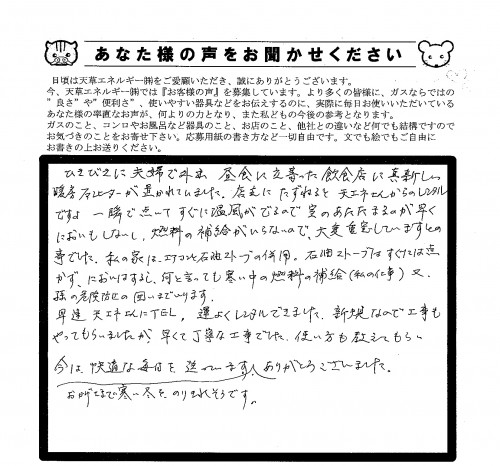 あなた様の声をお聞かせください
日頃は天草エネルギー㈱をご愛顧いただき、誠にありがとうございます。
今、天草エネルギー㈱では『お客様の声』を募集しています。より多くの皆様に、ガスならではの
”良さ”や”便利さ”、使いやすい器具などをお伝えするのに、実際に毎日お使いいただいている
あなた様の率直なお声が、何よりの力となり、また私どもの今後の参考となります。
ガスのこと、コンロやお風呂など器具のこと、お店のこと、他社との違いなど何でも結構ですので
お気づきのことをお寄せ下さい。応募用紙の書き方など一切自由です。文でも絵でもご自由に
お書きの上お送りください。
ひさびさに夫婦で外出 昼食に立寄った飲食店に真新しい
暖房 が置かれていました。店主にたずねると天エネさんからのレンタル
ですよ 一瞬で点いてすぐに温風がでるので室のあたたまるのが早く
においもしないし、燃料の補給がいらないので、大変重宝していますとの
事でした。私の家はエアコンと石油ストーブの併用。石油ストーブはすぐには点
かず、においはするし、何と言っても寒い中の燃料の補給(私の仕事)又、
孫の危険防止の囲いまでいります。
早速 天エネさんにTEL，運よくレンタルできました。新規なので工事も
やってもらいましたが、早くて丁寧な工事でした。使い方も教えてもらい
今は快適な毎日を送っています。ありがとうございました。
おかげさまで寒い冬をのりきれそうです。